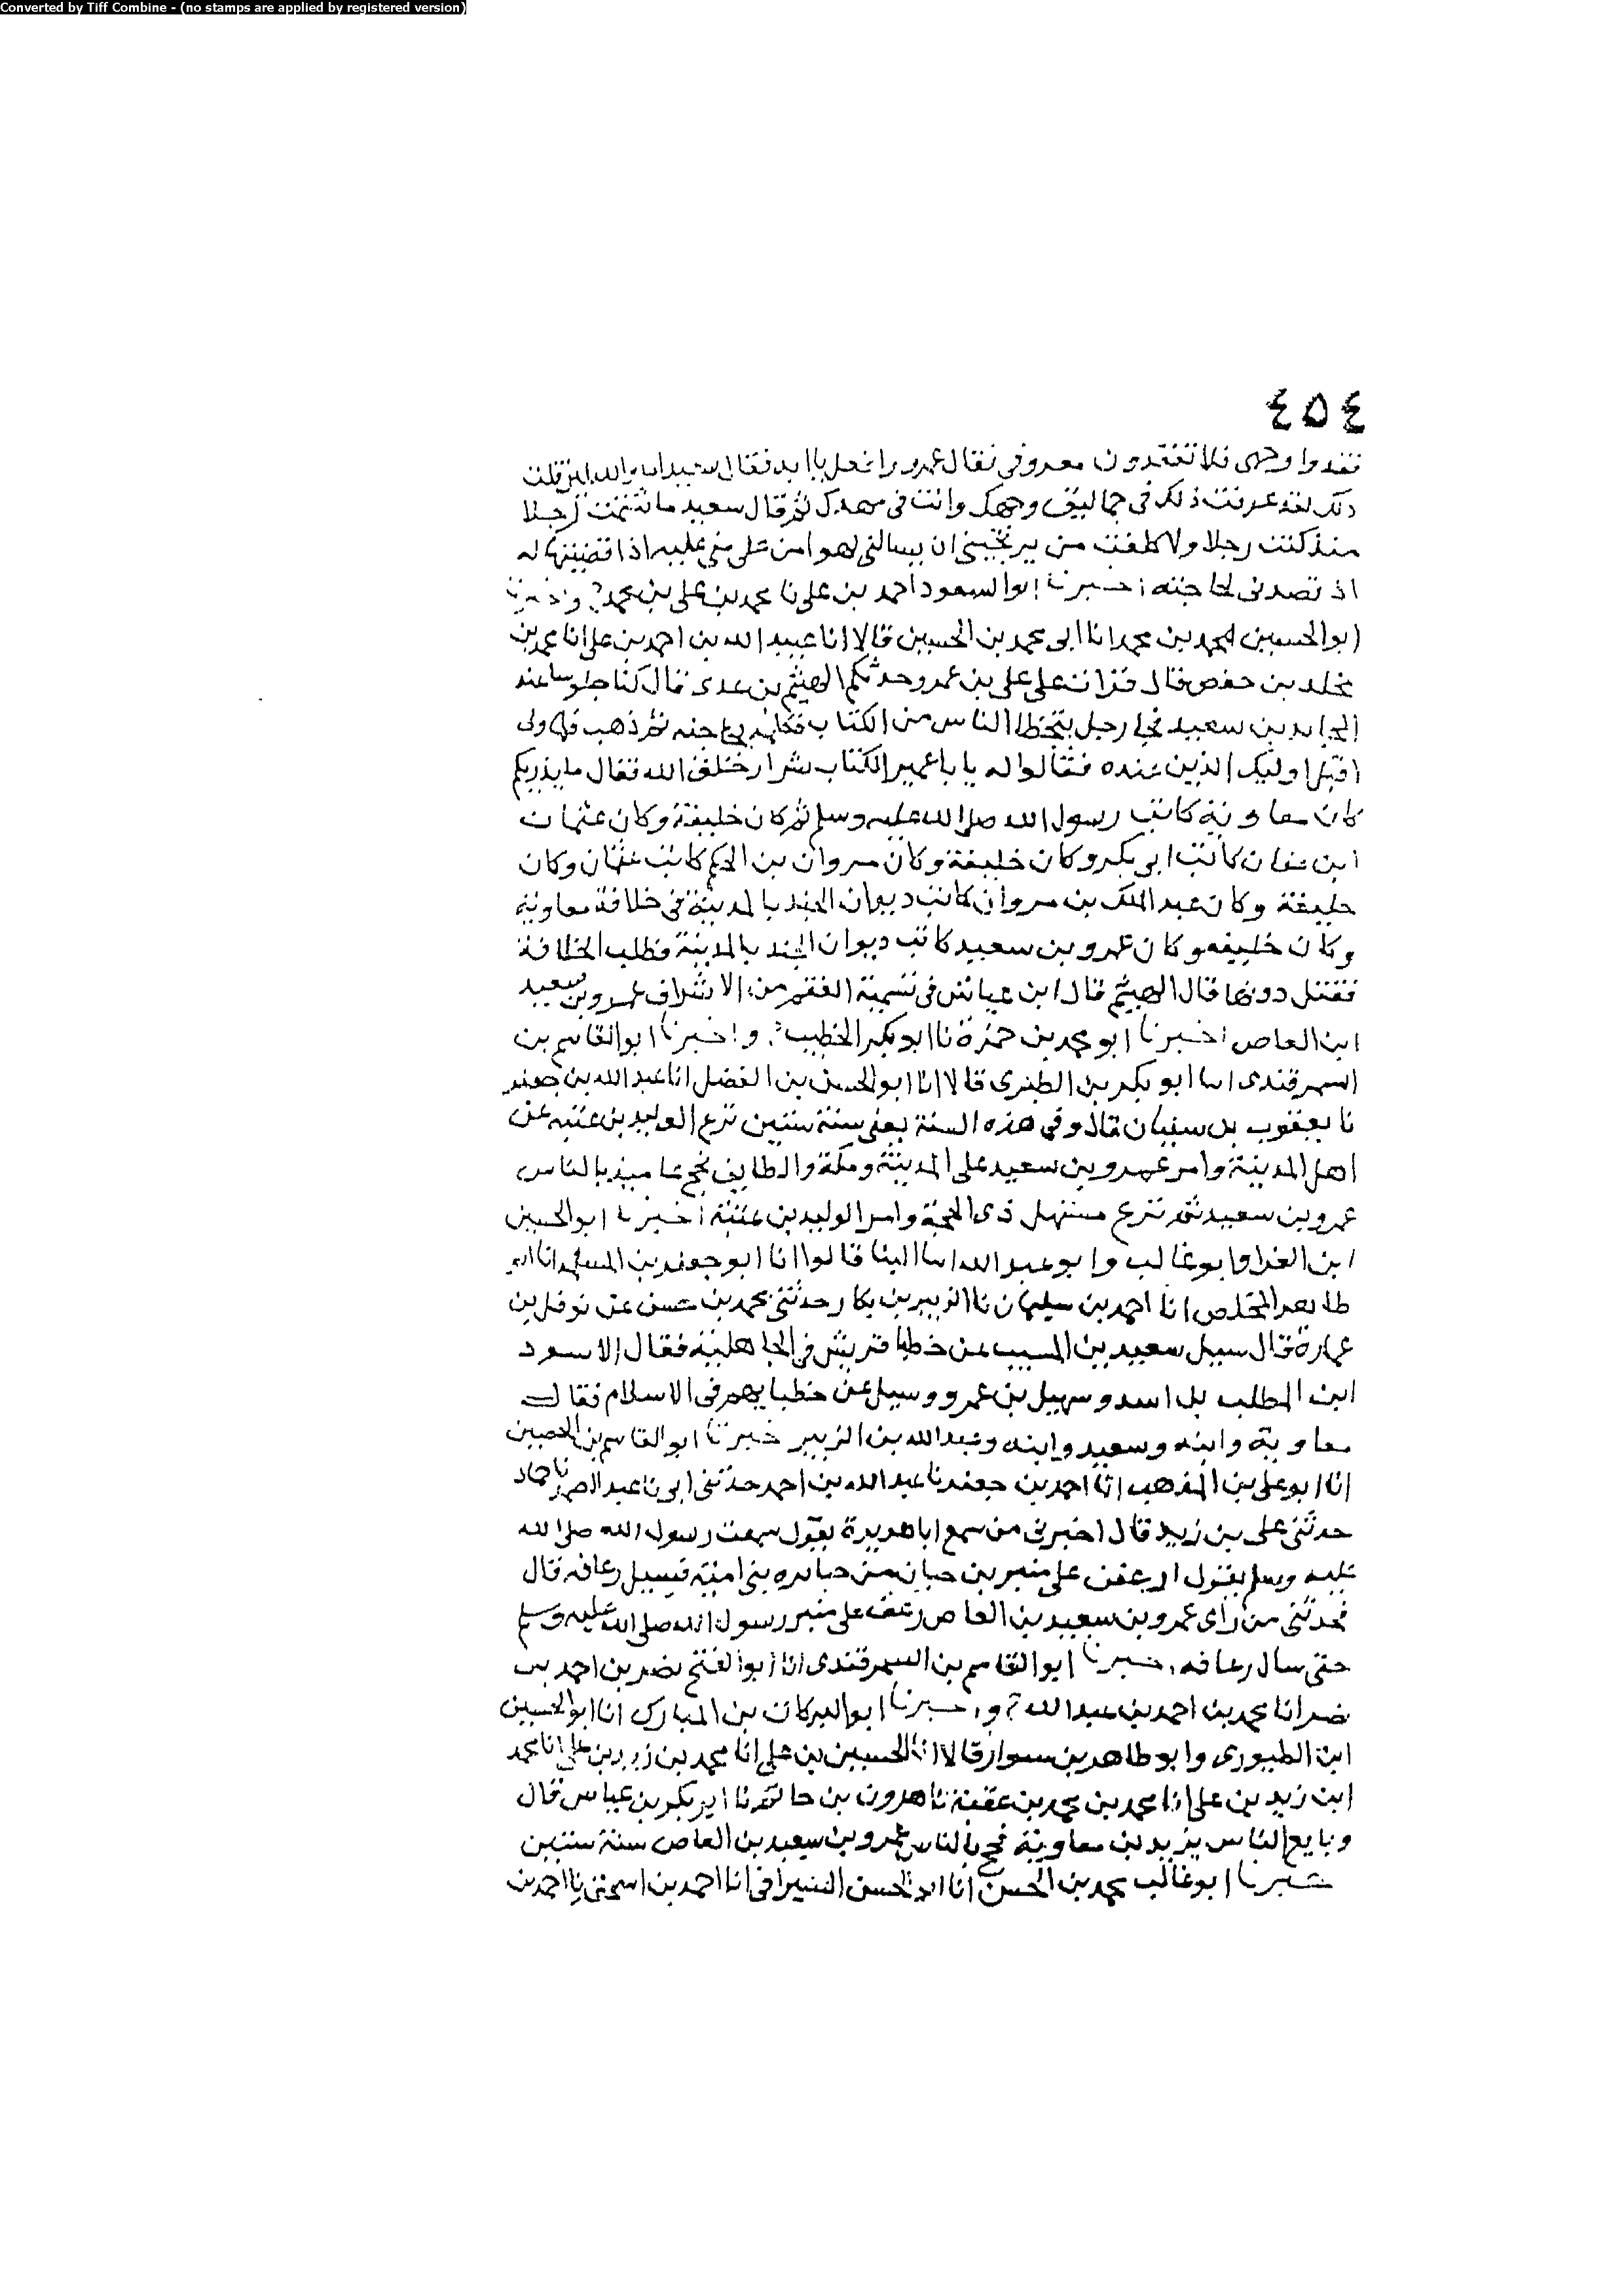 Converted by Tiff Combine - (no stamps are applied by registered version)
٤٥٤
فقدوا وجهى فلا تفقدون معروفى فقال عمرو انا فعل يا ابه فقال سعيد اما والله لئن قلت
ذلك لقد عرفت ذلك فى حماليق وجهك وانت فى مهدك ثم قال سعيد ما شتمت رجلا
منذ كنت رجلا ولا كلفت من يرتجينى ان يسالنى لهو امن على منى عليه اذا قضيتها له
اذ قصدنى لحاجته اخبرنا ابو السعود احمد بن على نا محمد بن على بن محمد ح واخبرنا
ابو الحسين محمد بن محمد انا ابى محمد بن الحسين قالا انا عبيد الله بن احمد بن على انا محمد بن
مخلد بن حفص قال قرات على على بن عمرو حدثكم الهيثم بن عدى قال كنا جلوسا عند
المجالد بن سعيد فجا رجل يتخطا الناس من الكتاب فكلمه فى حاجته ثم ذهب فلما ولى
اقبل اوليك الذين عنده فقالوا له يا با عمير الكتاب شرار خلق الله فقال ما يدريكم
كان معاوية كاتب رسول الله صلى الله عليه وسلم ثم كان خليفة وكان عثمان
ابن عفان كاتب ابى بكر وكان خليفة وكان مروان بن الحكم كاتب عثمان وكان
خليفة وكان عبد الملك بن مروان كاتب ديوان الجند بالمدينة فى خلافة معاوية
وكان خليفه وكان عمرو بن سعيد كاتب ديوان الجند بالمدينة فطلب الخلافة
فقتل دونها قال الهيثم قال ابن عياش فى تسمية الفقم من الاشراف عمرو بن سعيد
ابن العاص اخبرنا ابو محمد بن حمزة نا ابو بكر الخطيب ح واخبرنا ابو القاسم بن
السمرقندى انا ابو بكر بن الطبرى قالا انا ابو الحسين بن الفضل انا عبد الله بن جعفر
نا يعقوب بن سفيان قال وفى هذه السنة يعنى سنة ستين نزع الوليد بن عتبه عن
اهل المدينة وامر عمرو بن سعيد على المدينة ومكة والطايف فحج عاميذ بالناس
عمرو بن سعيد ثم نزع مستهل ذى الحجة وامر الوليد بن عتبة اخبرنا ابو الحسين
ابن الفرا وابو غالب وابو عبد الله انبا البنا قالوا انا ابو جعفر بن المسلمه انا ابو
طاهر المخلص انا احمد بن سليمان نا الزبير بن بكار حدثنى محمد بن حسن عن نوفل بن
عمارة قال سيل سعيد بن المسيب عن خطبا قريش فى الجاهلية فقال الاسود
ابن المطلب بن اسد وسهيل بن عمرو وسيل عن خطبايهم فى الاسلام فقال
معاوية وابنه وسعيد وابنه وعبد الله بن الزبير اخبرنا ابو القاسم بن الحصين
انا ابو على بن المذهب انا احمد بن جعفر نا عبد الله بن احمد حدثنى ابى نا عبد الصمد نا حماد
حدثنى على بن زيد قال اخبرنى من سمع ابا هريرة يقول سمعت رسول الله صلى الله
عليه وسلم يقول ليرعفن على منبرى جبار من جبابره بنى امية فيسيل رعافه قال
فحدثنى من راى عمرو بن سعيد بن العاص رعف على منبر رسول الله صلى الله عليه وسلم
حتى سال رعافه اخبرنا ابو القاسم بن السمرقندى انا ابو الفتح نصر بن احمد بن
نصر انا محمد بن احمد بن عبد الله ح واخبرنا ابو البركات بن المبارك انا ابو الحسين
ابن الطيورى وابو طاهر بن سوار قالا انا الحسين بن على انا محمد بن زيد بن على انا محمد
ابن زيد بن على انا محمد بن محمد بن عقبة نا هرون بن حاتم نا ابو بكر بن عياش قال
وبايع الناس يزيد بن معاوية فحج بالناس عمرو بن سعيد بن العاص سنة ستين
اخبرنا ابو غالب محمد بن الحسن انا ابو الحسن السيرافى انا احمد بن اسحق نا احمد بن